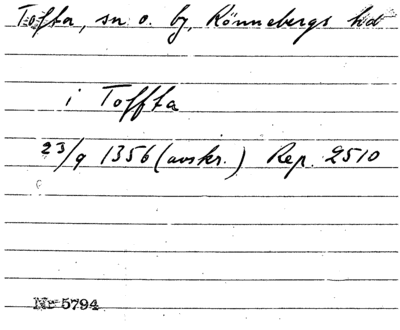 Tofta, sn o. by, Rönnebergs hd
i Toffta
23/9 1356 (avskr.) Rep. 2510
Nr 5794